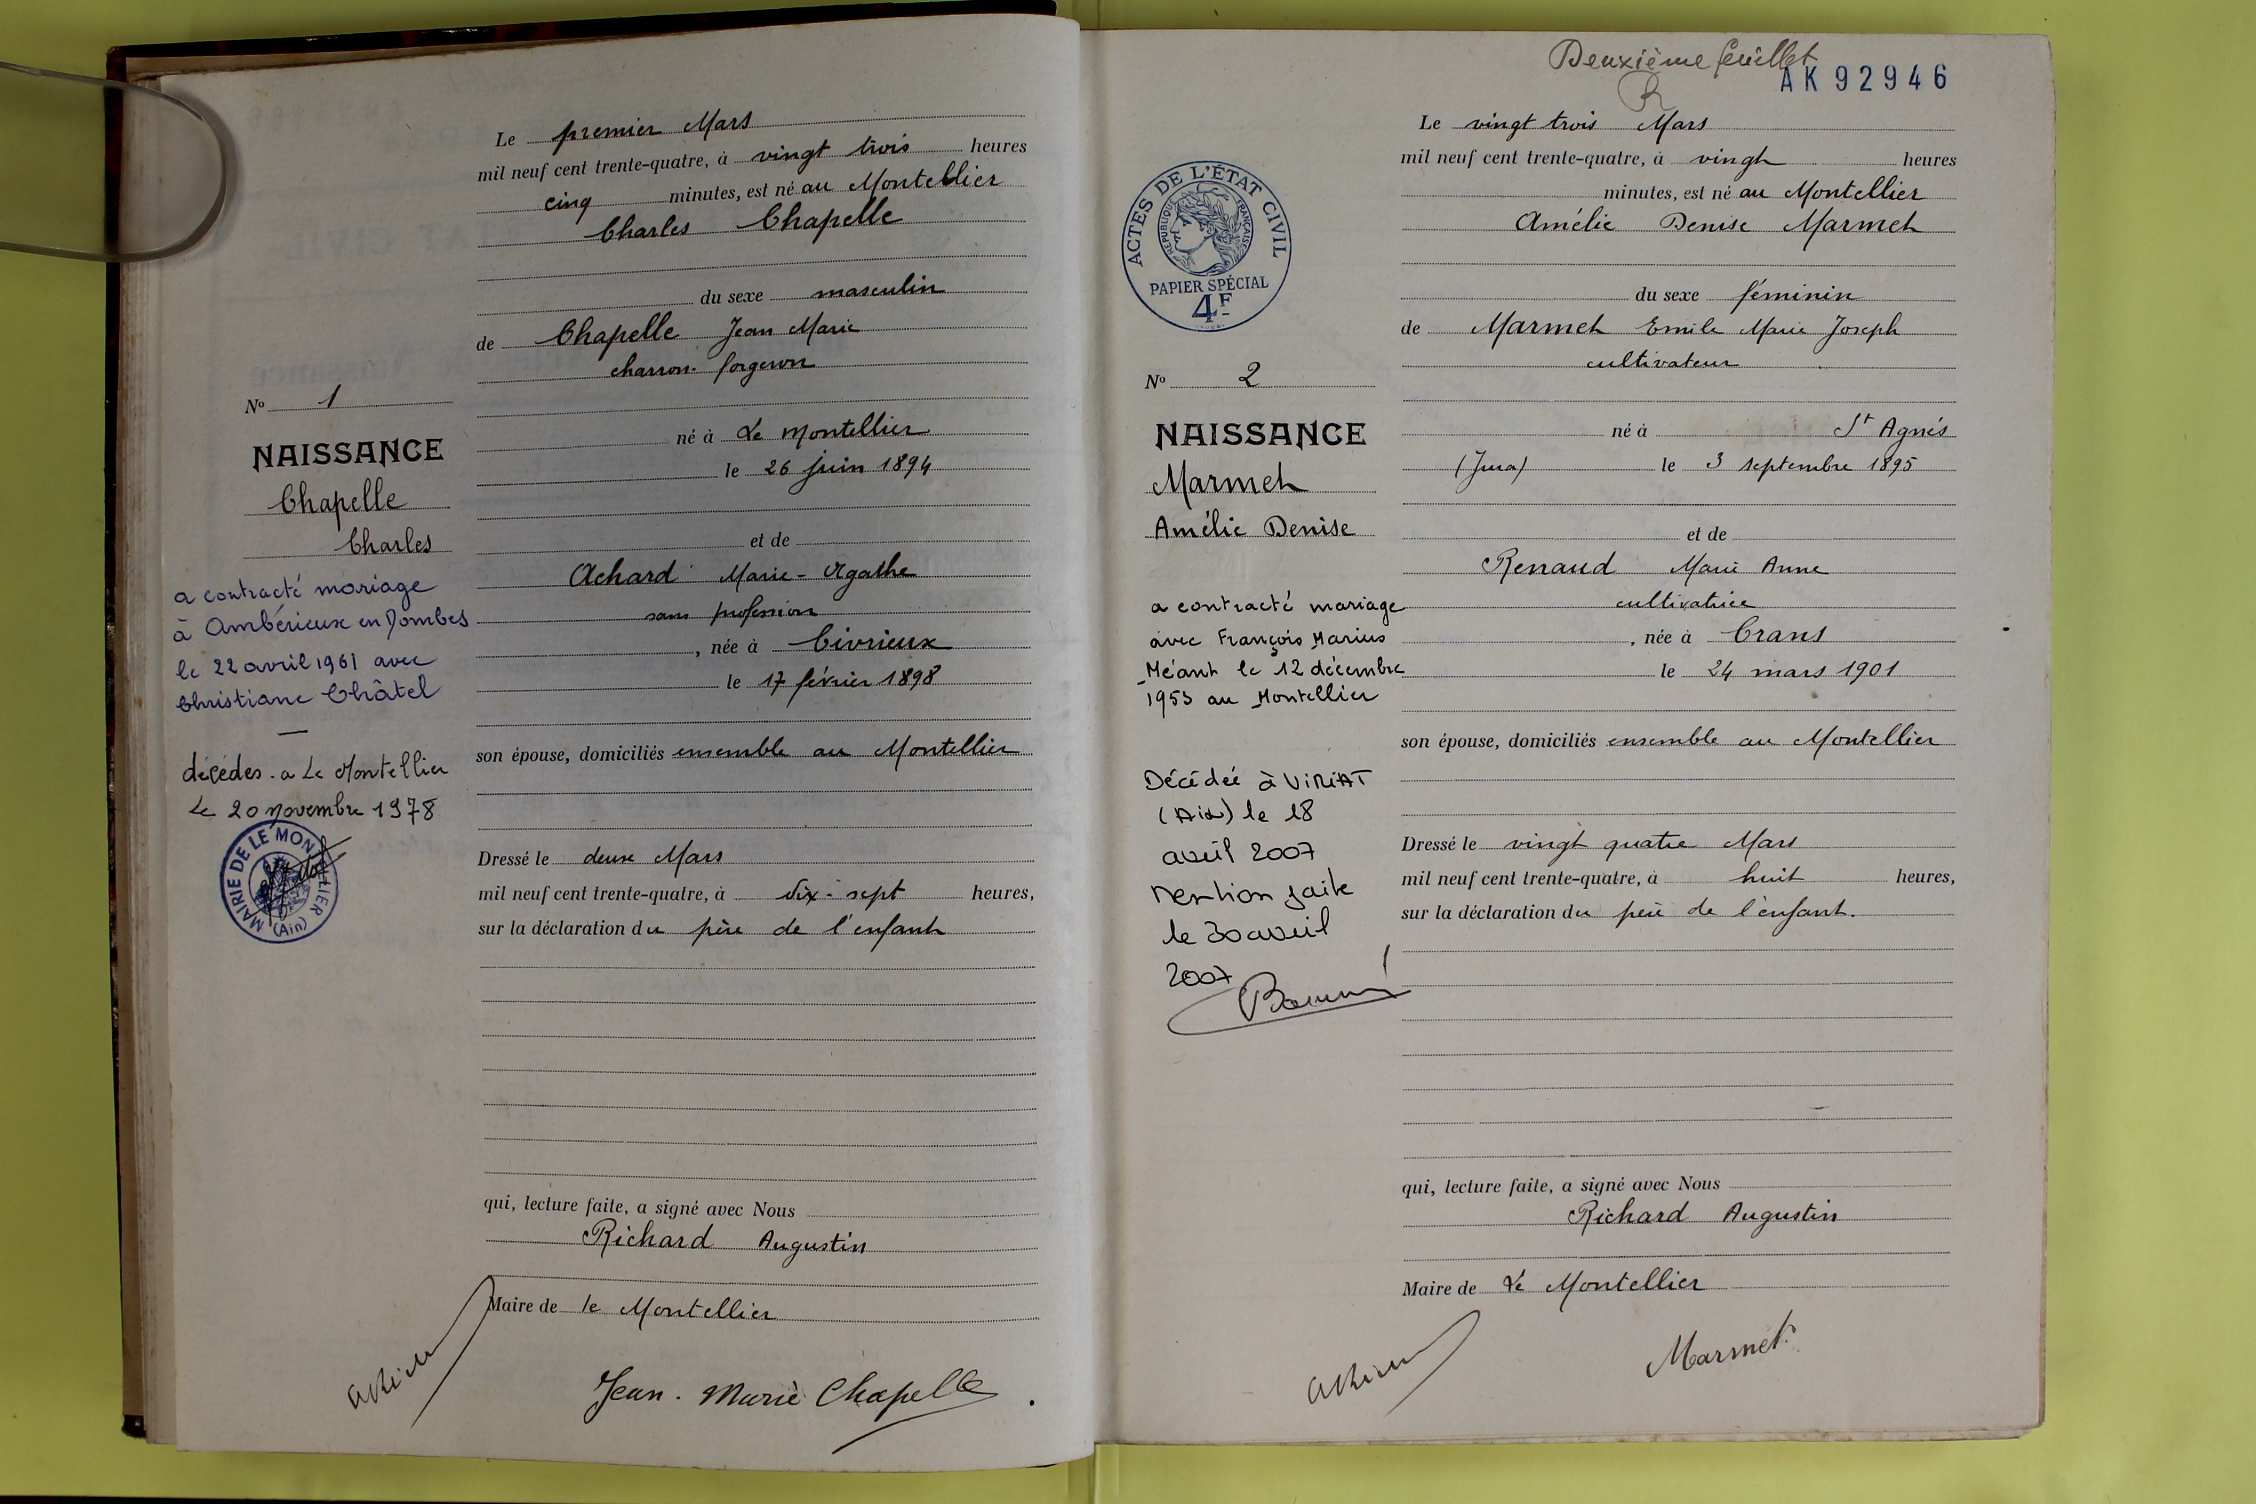 Le premier Mars
mil neuf cent trente-quatre, à vingt trois heures
cinq minutes, est né au Montellier
Charles Chapelle
du sexe masculin
de Chapelle Jean Marie
charron-forgeron
né à Le Montellier
le 26 juin 1894
et de
Achard Marie-Agathe
sans profession
, née à Civrieux
le 17 février 1898
son épouse, domiciliés ensemble au Montellier
Dressé le deux Mars
mil neuf cent trente-quatre, à dix-sept heures,
sur la déclaration du père de l'enfant
qui, lecture faite, a signé avec Nous
Richard Augustin
Maire de le Montellier
Jean-Marie Chapelle
No 1
NAISSANCE
Chapelle
Charles
a contracté mariage
à Ambérieux en Dombes
le 22 avril 1961 avec
Christiane Châtel
décédes. a Le Montellier
Le 20 novembre 1978
MAIRIE DE LE MONTELLIER
(Ain)
Deuxième feuillet
AK92946
Le vingt trois Mars
mil neuf cent trente-quatre, à vingt heures
minutes, est né au Montellier
Amélie Denise Marmet
du sexe féminin
de Marmet Emile Marie Joseph
cultivateur
né à St Agnés
(Jura) le 3 septembre 1895
et de
Renaud Marie Anne
cultivatrice
, née à Crans
le 24 mars 1901
son épouse, domiciliés ensemble au Montellier
Dressé le vingt quatre Mars
mil neuf cent trente-quatre, à huit heures,
sur la déclaration du père de l'enfant.
qui, lecture faite, a signé avec Nous
Richard Augustin
Maire de Le Montellier
Marmet
ACTES DE L'ÉTAT CIVIL
RÉPUBLIQUE FRANÇAISE
PAPIER SPÉCIAL
4F
No 2
NAISSANCE
Marmet
Amélie Denise
a contracté mariage
avec François Marius
Méant le 12 décembre
1953 au Montellier
Décédée à VIRIAT
(Ain) le 18
avril 2007
Mention faite
le 30 avril
2007